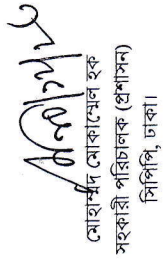 মোহাম্মদ মোকাম্মেল হক
সহকারী পরিচালক (প্রশাসন)
সিপিপি, ঢাকা।